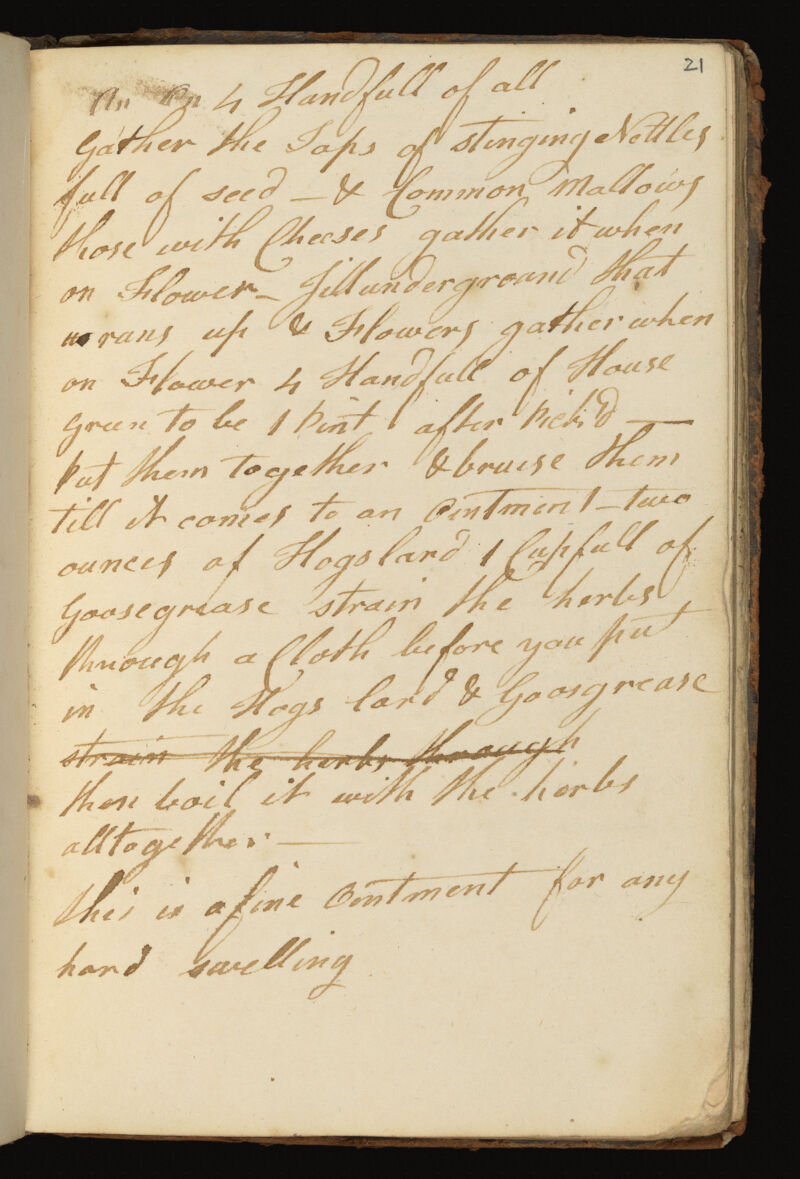 21
4 Handfull of all
Gather the Taps of stinging Nettles
full of seed - & Common Mallows
those with Cheeses gather it when
on Flower - Jillunderground that
rans up & Flowers gather when
on Flower 4 Handfull of House
Green to be 1 Pint after Pick'd —
put them together & bruise them
till it comes to an Ointment - two
ounces of Hogslard 1 Cupfull of
Goosegrease strain the herbs
through a Cloth before you put
in the Hogs lard & Goosgrease
strain the herbs through
then boil it with the herbs
alltogether —
this is a fine Ointment for any
hard swelling